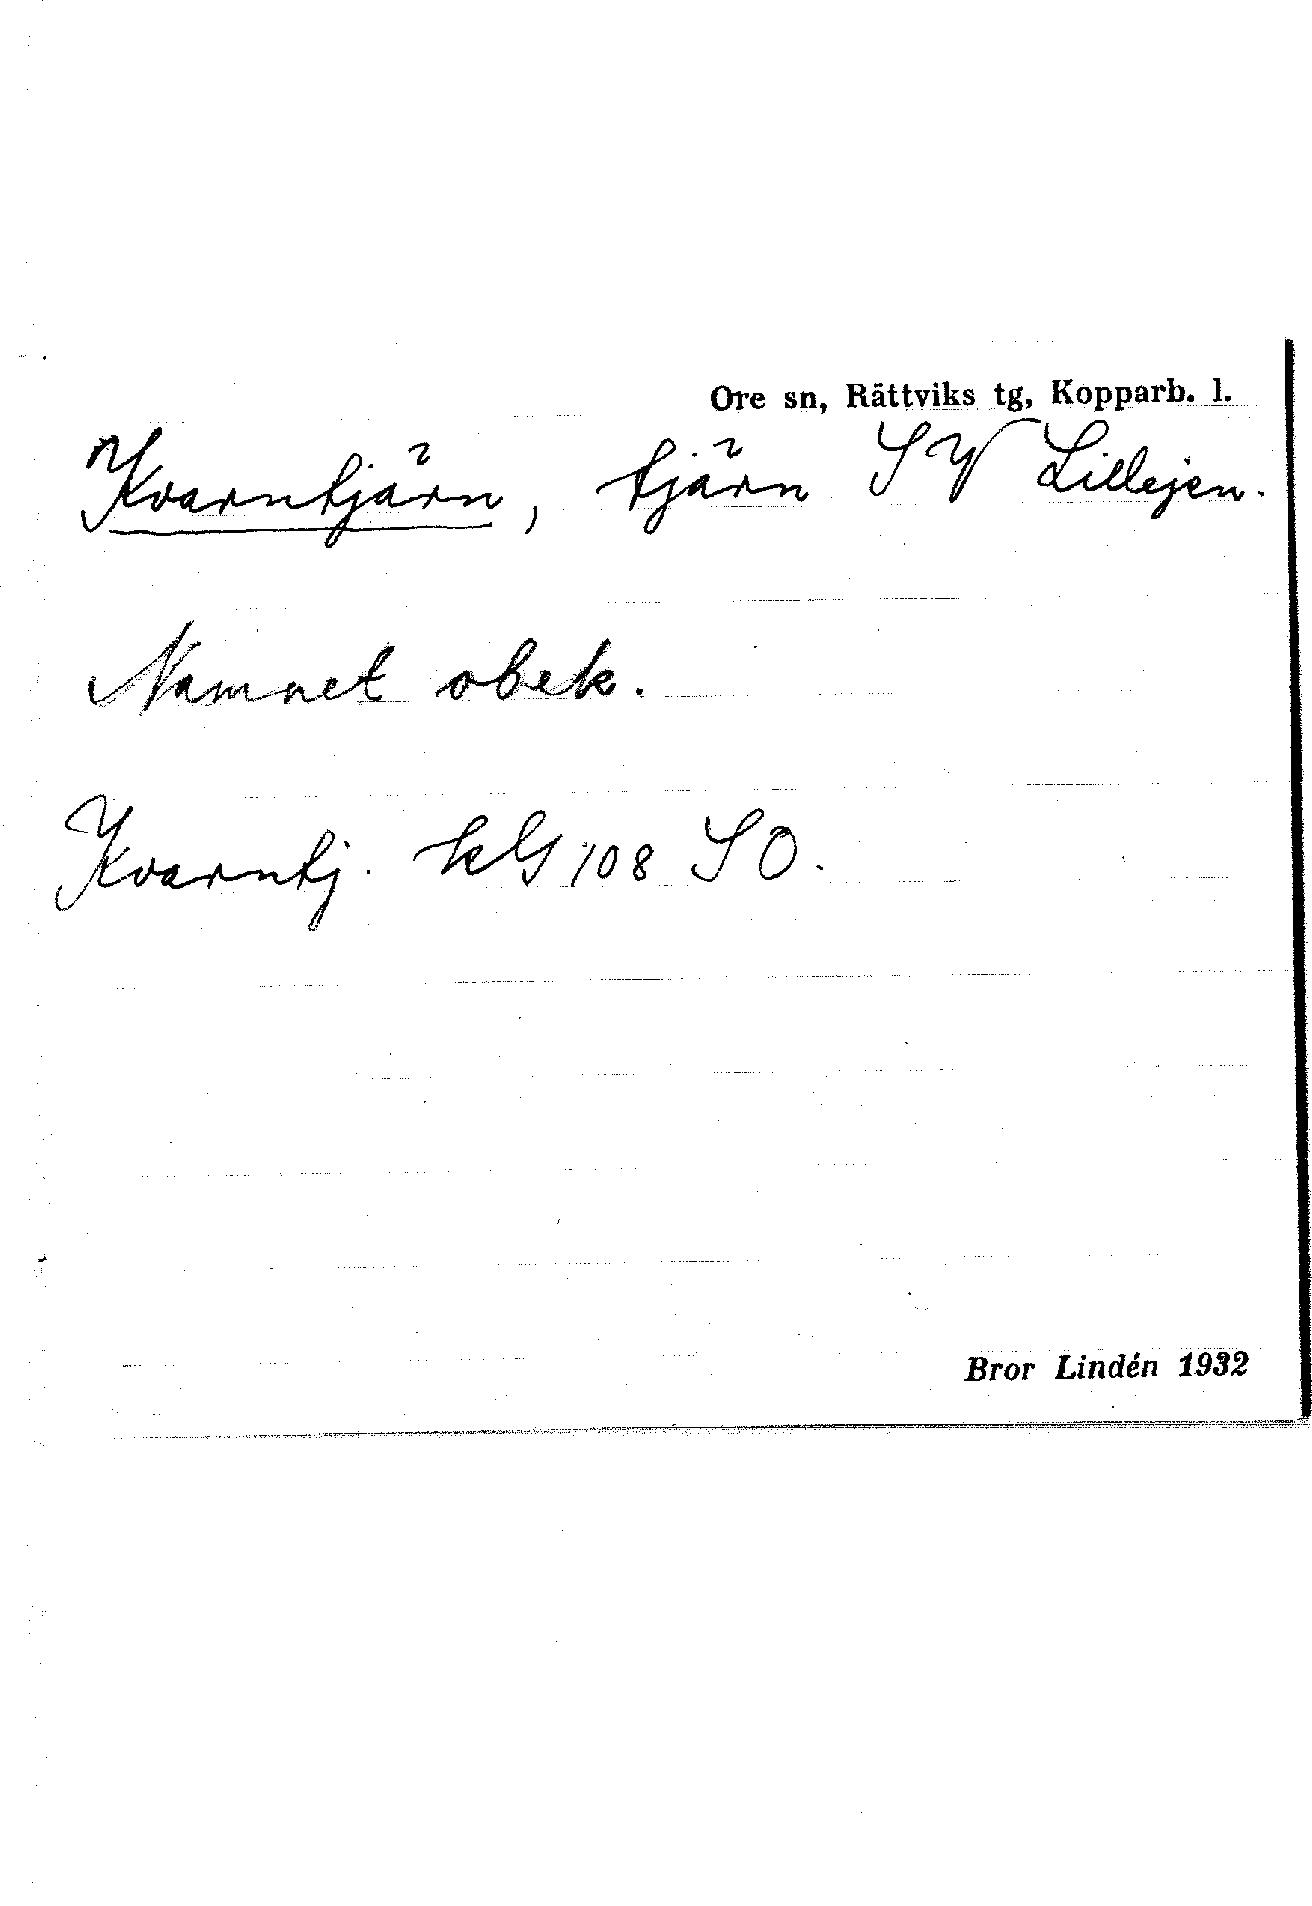 Ore sn, Rättviks tg, Kopparb. l.
Kvarntjärn, tjärn SV Lillejen.
Namnet obek.
Kvarntj. kG 108 SO.
Bror Lindén 1932